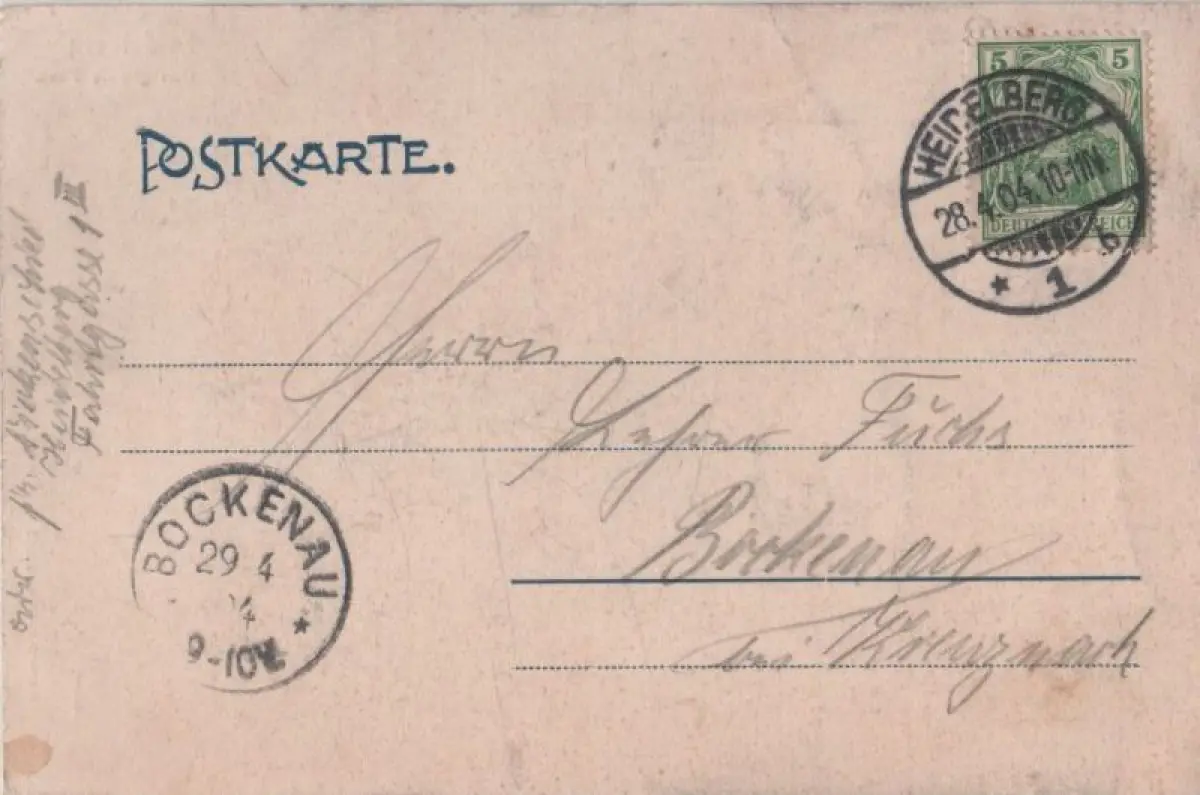 POSTKARTE.
5 5
DEUTSCHES REICH
HEIDELBERG
28.4.04.10-11N.
* 1 b
Herrn
Lehrer Fuchs
Bockenau
bei Kreuznach
BOCKENAU
29 4
9-10V
*
Heidelberg
Fahrtgasse 1 III